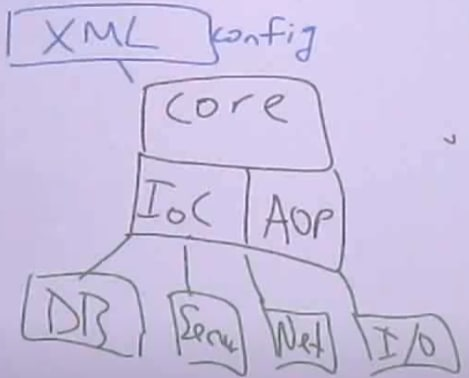 XML config
core
IoC AOP
DB Net I/O